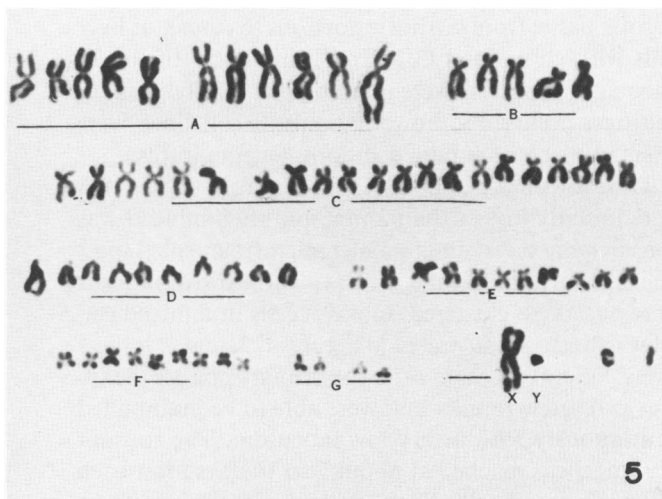 A
B
C
D
E
F
G
X Y
5